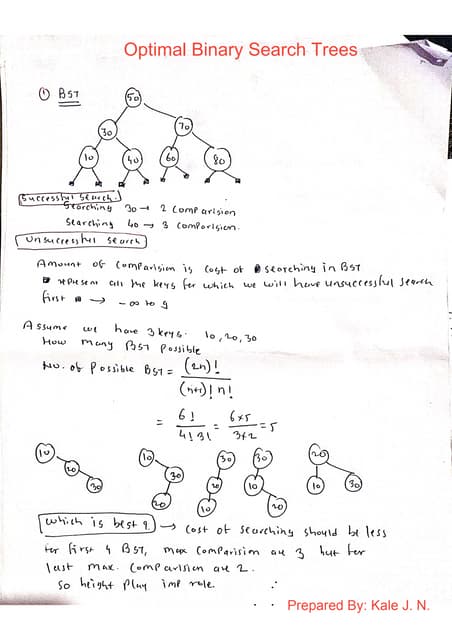 Optimal Binary Search Trees
① BST
50
30 70
10 40 60 80
Successful search.
Searching 30 → 2 comparision
Searching 40 → 3 comparision.
Unsuccessful search
Amount of comparision is cost of searching in BST
■ represent all the keys for which we will have unsuccessful search
first ■ → -∞ to 9
Assume we have 3 keys. 10, 20, 30
How many BST possible
No. of possible BST = (2n)! / (n+1)! n!
= 6! / 4! 3! = 6×5 / 3×2 = 5
10 10 30 30 20
20 30 20 10 10 30
30 20 10 20
which is best ? → cost of searching should be less
for first 4 BST, max comparision are 3 but for
last max. comparision are 2.
so height play imp role.
Prepared By: Kale J. N.